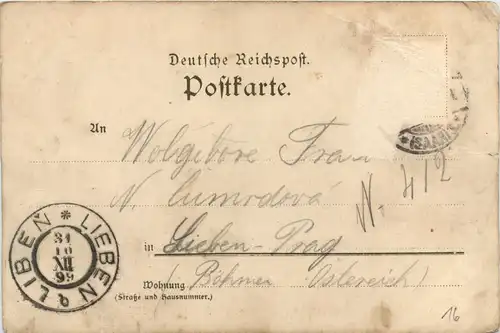 Deutsche Reichspost.
Postkarte.
An
Wolgibore Frau
N.
N. 412
in Lieben-Prag
Wohnung Böhmen Östereich)
(Straße und Hausnummer.)
LIBEŇ * LIEBEN
31
XII
99
16